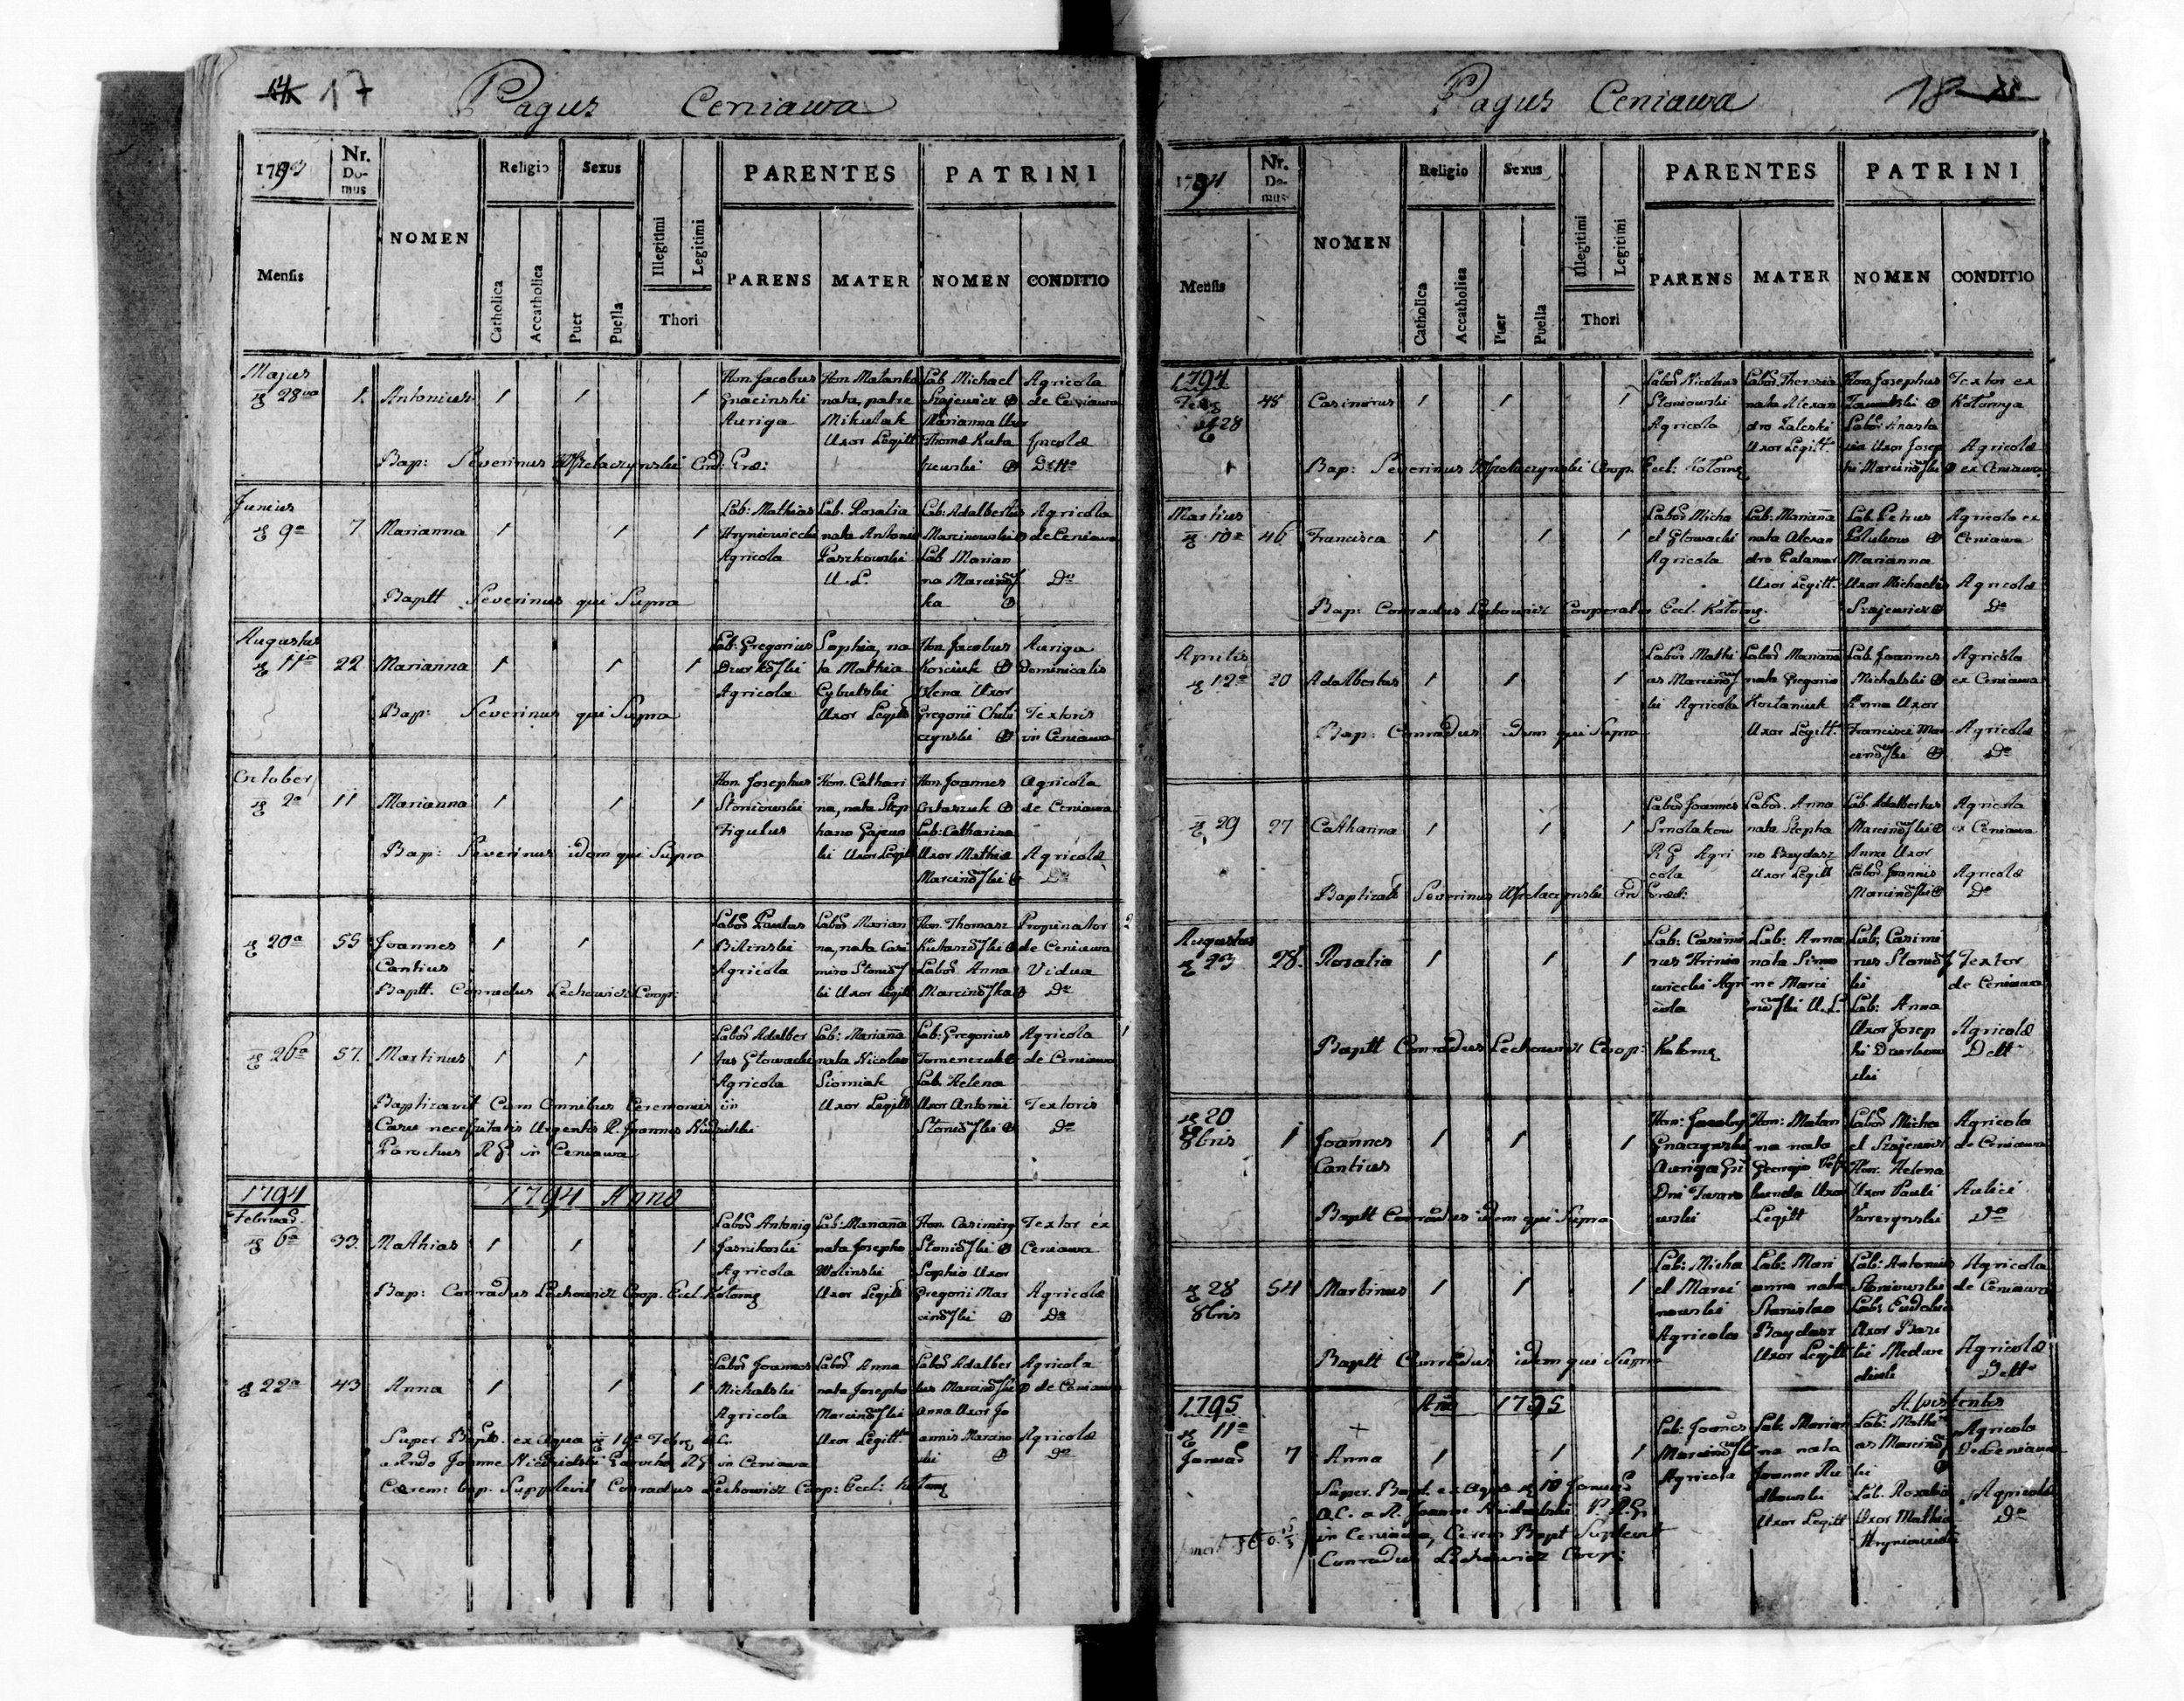 17
Pagus Ceniawa
1793
Nr. Do- mus
NOMEN
Religio
Sexus
Illegitimi
Legitimi
Thori
PARENTES
PATRINI
Mensis
Catholica
Accatholica
Puer
Puella
PARENS
MATER
NOMEN
CONDITIO
Majus
28va 1. Antonius 1 1 1
Hon. Jacobus
Gnacinski
Auriga
nata patre
Mikulak
Uxor Legitt
Lab Michael
Szajewicz
Marianna Uxor
Thomæ Kuta
szewski
Agricola
de Ceniawa
Agricolæ
Detto
Bap: Severinus
Junius
9a 7 Marianna 1 1 1
Lab: Mathias
Hryniewiecki
Agricola
Lab. Rosalia
nata Antonio
Paszkowski
U. L.
Lab: Adalbertus
Marcinowski
Lab Marian
na Marcinos
ka
Agricola
de Ceniawa
Do
Baptt Severinus qui Supra
Augustus
11a 22 Marianna 1 1 1
Lab: Gregorius
Agricola
Sophia, na
ta Mathia
Cybulski
Uxor Legitt
Hon. Jacobus
Kosciuk
Helena Uxor
Gregorii
Auriga
Dominicalis
Textoris
in Ceniawa
Bap: Severinus qui Supra
October
2a 11 Marianna 1 1 1
Hon. Josephus
Stoniowski
Figulus
Hon. Cathari
na, nata Step
hano Gajews
ki Uxor Legitt
Hon. Joannes
Ostaszuk
Lab: Catharina
Uxor Mathiæ
Marcinoski
Agricola
de Ceniawa
Agricolæ
Do
Bap: Severinus idem qui Supra
20a 55 Joannes
Cantius 1 1 1
Labos Paulus
Bilinski
Agricola
Labos Marian
na, nata Casi
miro Stonios
ki Uxor Legitt
Hon. Thomasz
Labos Anna
Marcinoska
Propinator
de Ceniawa
Vidua
Do
Baptt. Conradus Lechowicz Coop:
26a 57. Martinus 1 1 1
Labos Adalber
tus Głowacki
Agricola
Lab: Marianna
nata Nicolao
Siomiak
Uxor Legitt
Lab: Gregorius
Tomenczuk
Lab. Helena
Uxor Antonii
Stonioski
Agricola
de Ceniawa
Textoris
Do
Baptizavit Cum Omnibus Ceremoniis in
Casu necessitatis Urgentis R. Joannes
Parochus R G in Ceniawa
1794
1794 Anno
Februar.
6a 33. Mathias 1 1 1
Labos Antonius
Jasnikoski
Agricola
Lab: Marianna
nata Josepho
Wolinski
Uxor Legitt
Hon. Casimirus
Stonioski
Sophia Uxor
Gregorii Mar
cinoski
Textor ex
Ceniawa
Agricolæ
Do
Bap: Conradus Lechowicz Coop. Eccl. Kołomy
22a 43 Anna 1 1 1
Labos Joannes
Michalski
Agricola
Labos Anna
nata Josepho
Marcinoski
Uxor Legitt.
Labos Adalber
tus Marcinoski
Anna Uxor Jo
annis Marcino
ski
Agricola
de Ceniawa
Agricolæ
Do
Super Bapto. ex Aqua 19a Febr. a.c.
a Rndo Joanne Parocho R G in Ceniawa
Cerem: bap. Supplevit Conradus Lechowicz Coop: Eccl: Kołomy
Pagus Ceniawa
18
1794
Nr. Do- mus
NOMEN
Religio
Sexus
Illegitimi
Legitimi
Thori
PARENTES
PATRINI
Mensis
Catholica
Accatholica
Puer
Puella
PARENS
MATER
NOMEN
CONDITIO
1794
Febr
28 45 Casimirus 1 1 1
Labos Nicolaus
Stoniowski
Agricola
Labos Theresia
nata Alexan
dro Zaleski
Uxor Legitt.
Hon. Josephus
Labos: Anasta
sia Uxor Josep
hi Marcinoski
Textor ex
Kołomya
Agricolæ
ex Ceniawa
Bap: Severinus Coop. Eccl: Kołomy
Martius
10a 46 Francisca 1 1 1
Labos Micha
el Głowacki
Agricola
Lab: Marianna
nata Alexan
dro Palamar
Uxor Legitt.
Lab. Petrus
Marianna
Uxor Michaelis
Szajewicz
Agricola ex
Ceniawa
Agricolæ
Do
Bap: Conradus Lechowicz Cooperator Eccl. Kołomy.
Aprilis
12a 20 Adalbertus 1 1 1
Labos Mathi
as Marcinos
ki Agricola
Labos Marianna
nata Gregorio
Kostaniuk
Uxor Legitt.
Lab. Joannes
Michalski
Anna Uxor
Francisci Mar
cinoski
Agricola
ex Ceniawa
Agricolæ
Do
Bap: Conradus idem qui Supra
29 27 Catharina 1 1 1
Labos Joannes
Smolakow
R G Agri
cola
Labos. Anna
nata Stepha
no Baydasz
Uxor Legitt
Lab. Adalbertus
Marcinoski
Anna Uxor
Labos Joannis
Marcinoski
Agricola
ex Ceniawa
Agricolæ
Do
Baptizavit Severinus
Augustus
23 28. Rosalia 1 1 1
Lab: Casimi
rus Hrinie
wiecki Agri
cola
Lab: Anna
nata Simo
ne Marci
noski U.L.
Lab: Casimi
rus Stonios
ki
Lab: Anna
Uxor Josep
hi Dzurkow
ski
Textor
de Ceniawa
Agricolæ
Detto
Baptt Conradus Lechowicz Coop: Kołomy
20
8bris 1 Joannes
Cantius 1 1 1
Hon: Jacobus
Gnaczynski
Auriga
Hon: Matan
na nata
Georgio
Uxor
Legitt
Labos Micha
el Szajewicz
Hon. Helena
Uxor Pauli
Agricola
de Ceniawa
Aulici
Do
Baptt Conradus idem qui Supra
28
8bris 54 Martinus 1 1 1
Lab: Micha
el Marci
nowski
Agricola
Lab: Mari
anna nata
Stanislao
Baydasz
Uxor Legitt
Lab: Antonius
Stoniowski
Lab: Eudokia
Uxor Bazi
lii
Agricola
de Ceniawa
Agricolæ
Detto
Baptt Conradus idem qui Supra
1795
Ano 1795
11a
Januar 7 Anna 1 1 1
Lab: Joannes
Marcinoski
Agricola
Lab. Marian
na nata
Joanne
Uxor Legitt
Assistentes
Lab: Mathi
as Marcinos
ki
Lab. Rosalia
Uxor Mathiæ
Agricola
De Ceniawa
Agricolæ
Do
Super. Bapt. ex Aqua 10 Januar
a.C. a R. Joanne P. R.G.
in Ceniawa, Cerem Bapt Suplevit
Conradus Lechowicz Coop: